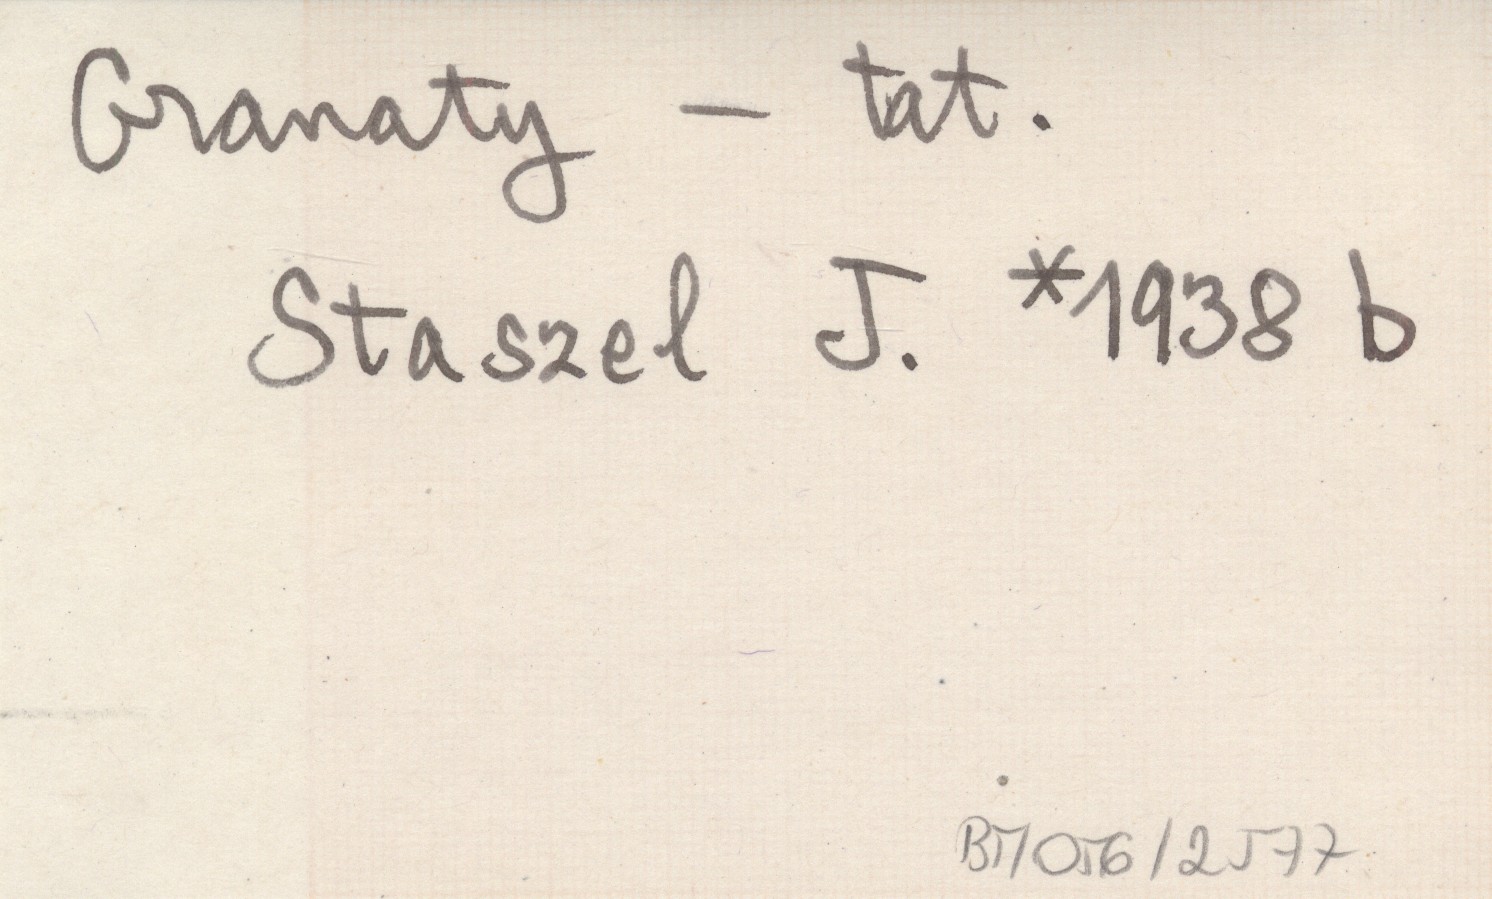 Granaty - tat.
Staszel J. *1938 b
BM056/2577